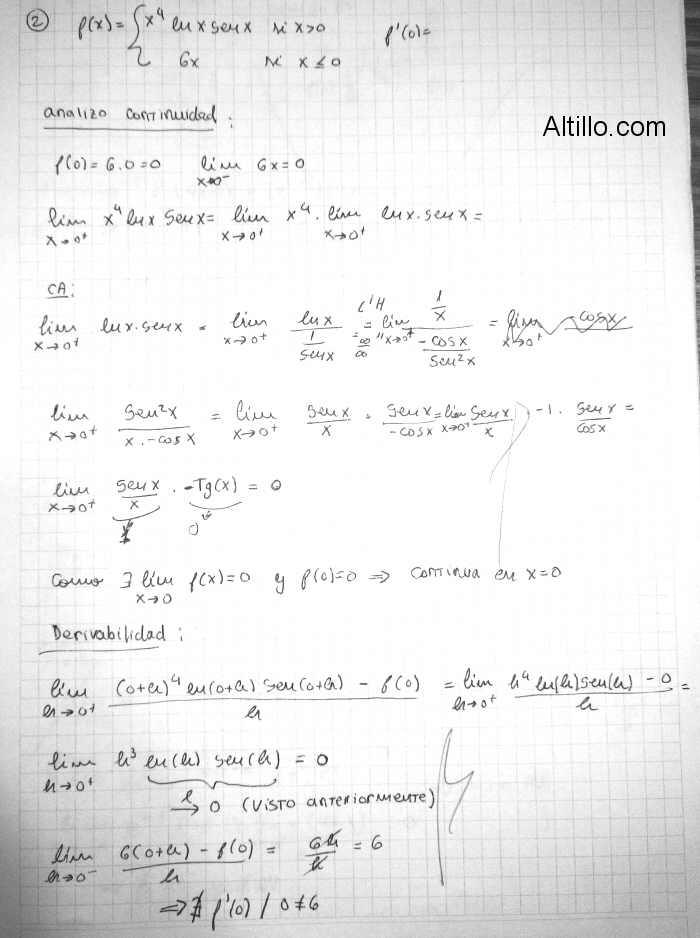 ② f(x) = { x⁴ ln x sen x si x>0 f'(0)=
6x si x ≤ 0
analizo continuidad:
Altillo.com
f(0) = 6.0 = 0 lim x→0⁻ 6x = 0
lim x→0⁺ x⁴ ln x sen x = lim x→0⁺ x⁴ . lim x→0⁺ ln x . sen x =
CA:
lim x→0⁺ ln x . sen x = lim x→0⁺ ln x / (1/sen x) = ∞/∞ L'H lim x→0⁺ (1/x) / (-cos x / sen²x) = lim x→0⁺ cos x
lim x→0⁺ sen²x / (x . -cos x) = lim x→0⁺ sen x / x . sen x / -cos x = lim x→0⁺ sen x / x . -1 . sen x / cos x =
lim x→0⁺ sen x / x . -Tg(x) = 0
1 0
Como ∃ lim x→0 f(x)=0 y f(0)=0 ⇒ continua en x=0
Derivabilidad:
lim h→0⁺ ((0+h)⁴ ln(0+h) sen(0+h) - f(0)) / h = lim h→0⁺ (h⁴ ln(h) sen(h) - 0) / h =
lim h→0⁺ h³ ln(h) sen(h) = 0
→ 0 (visto anteriormente)
lim h→0⁻ (6(0+h) - f(0)) / h = 6h / h = 6
⇒ ∄ f'(0) / 0 ≠ 6